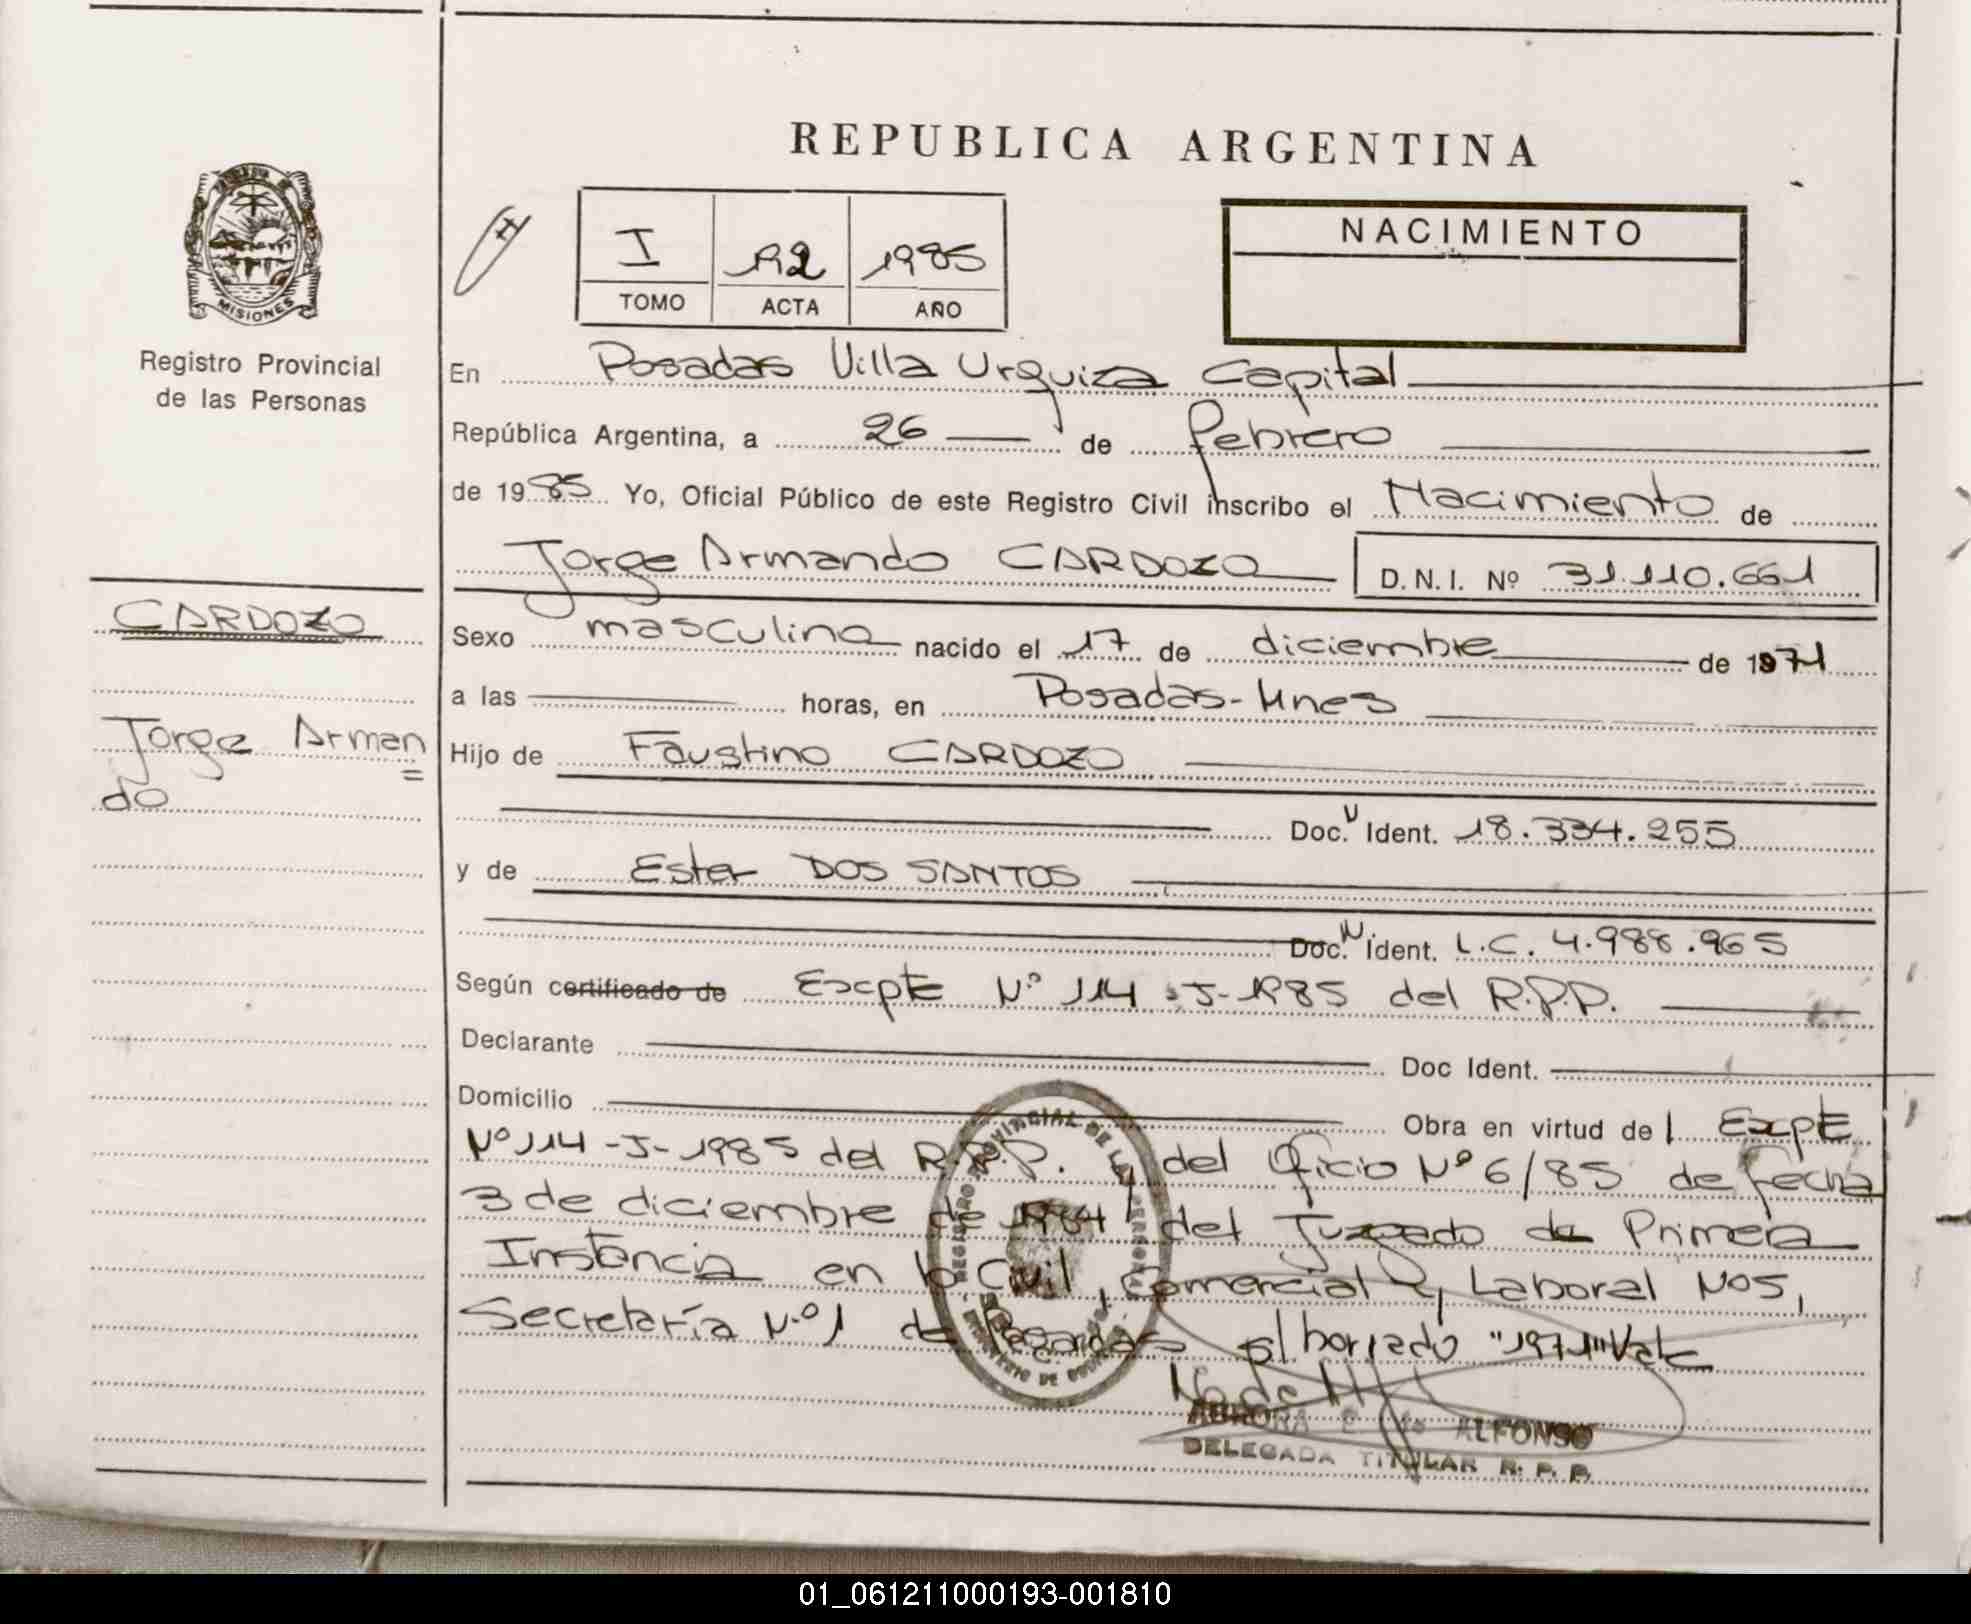 REPUBLICA ARGENTINA
MISIONES
Registro Provincial
de las Personas
I
TOMO
ACTA
1985
AÑO
NACIMIENTO
En Posadas Villa Urquiza Capital
República Argentina, a 26 de febrero
de 1985 Yo, Oficial Público de este Registro Civil inscribo el Nacimiento de
Jorge Armando CARDOZO D.N.I. Nº 31.110.661
CARDOZO
Jorge Arman=
do
Sexo masculino nacido el 17 de diciembre de 1971
a las horas, en Posadas-Mnes
Hijo de Faustino CARDOZO
Doc. Ident. 18.334.255
y de Ester DOS SANTOS
Doc. Ident. L.C. 4.988.965
Según certificado de Expte Nº 114-J-1985 del R.P.P.
Declarante Doc Ident.
Domicilio Obra en virtud del Expte
Nº 114-J-1985 del R.P.P. y del Oficio Nº 6/85 de fecha
3 de diciembre de 1984 del Juzgado de Primera
Instancia en lo Civil, Comercial y Laboral Nº5,
Secretaría Nº1 de Posadas s/borrado "1971" Vale
AURORA E ALFONSO
DELEGADA TITULAR R. P. P.
01_061211000193-001810